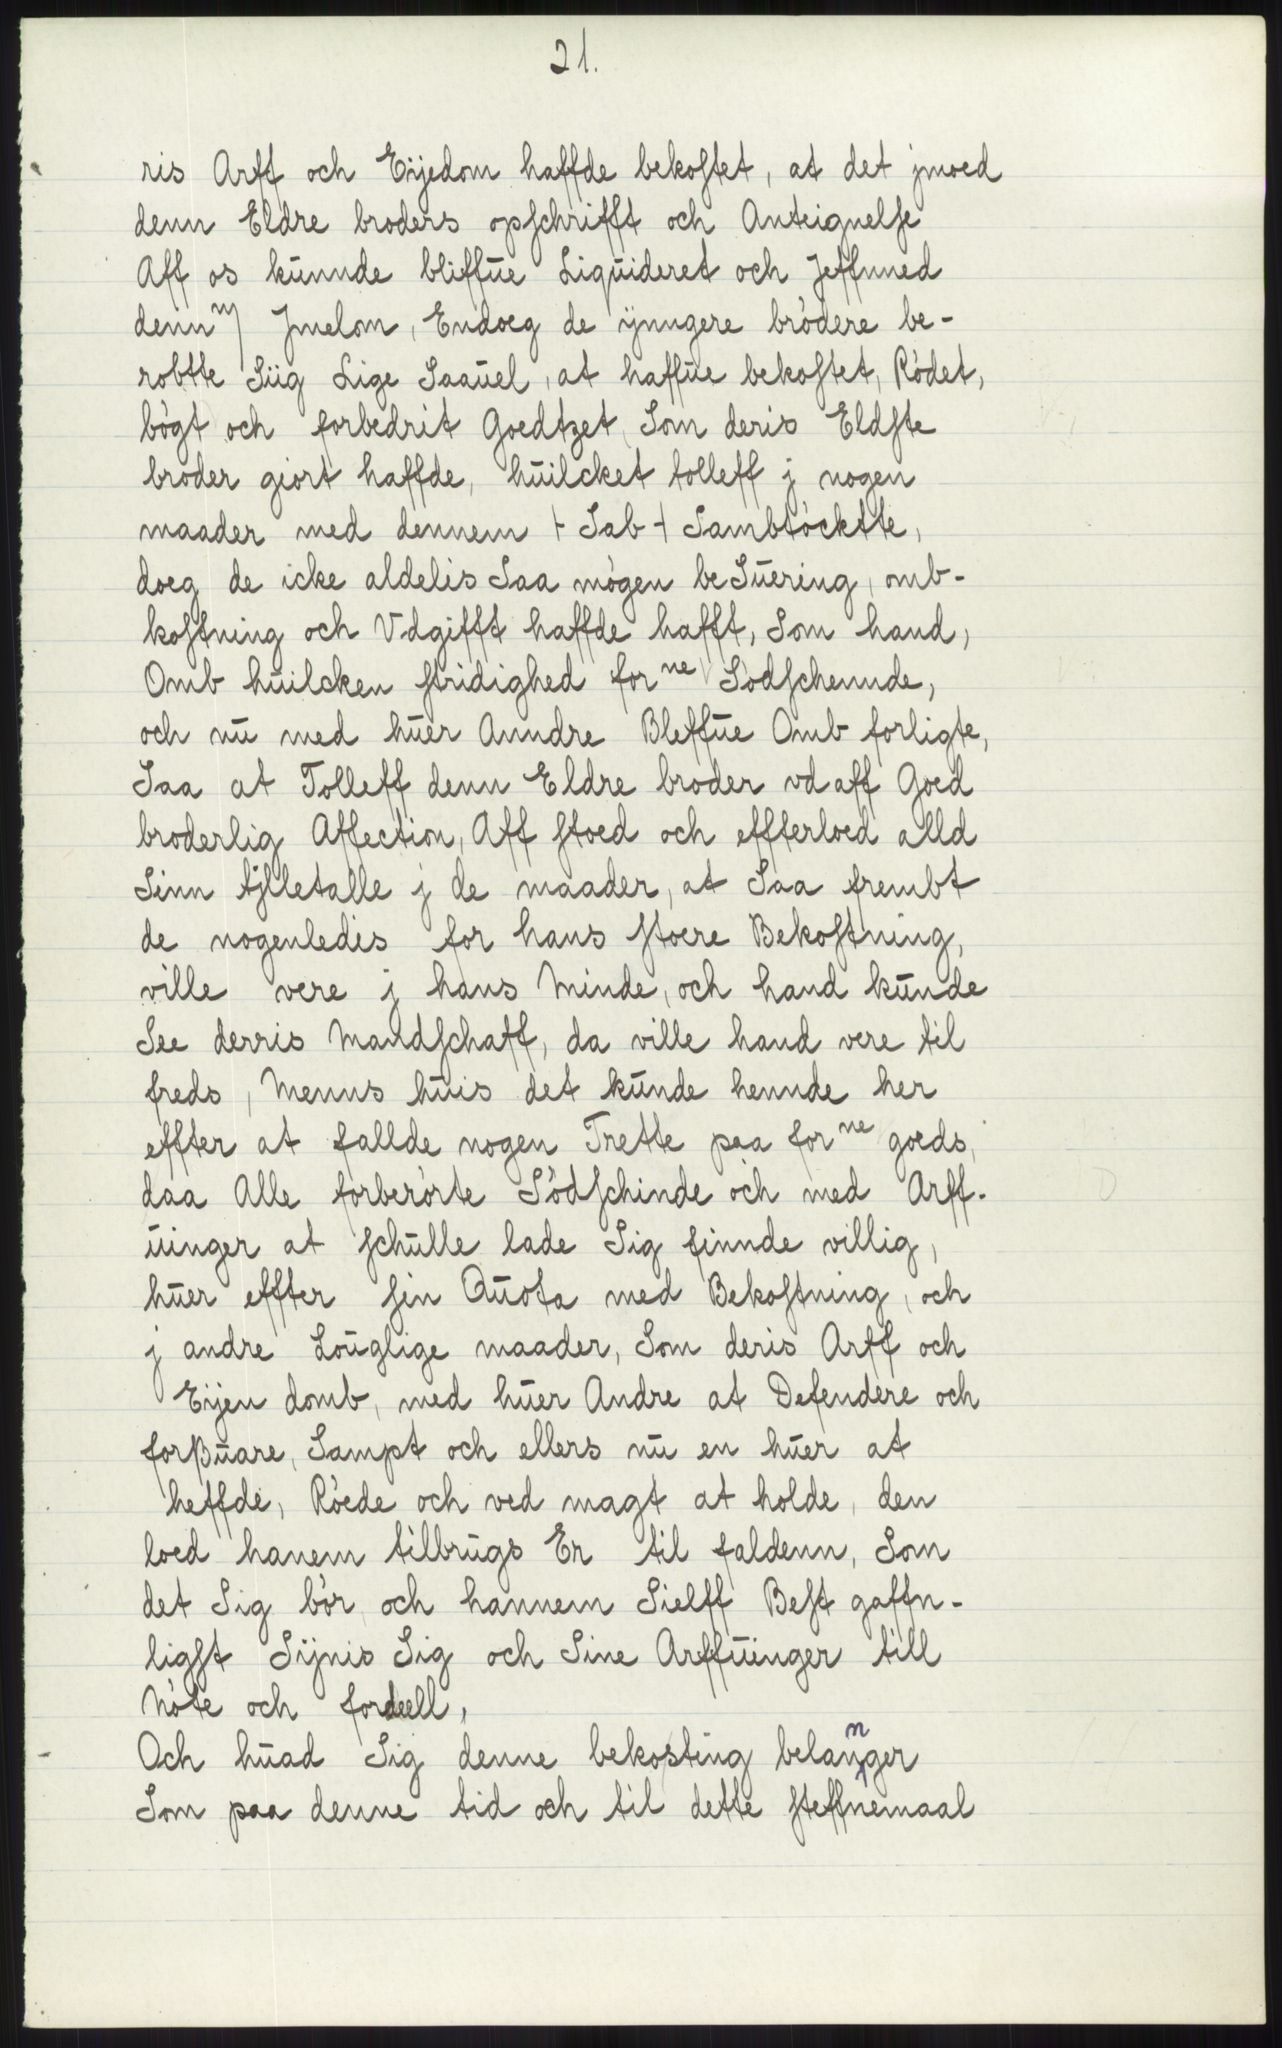 21.
ris Arff och Eijedom haffde bekostet, at det jmoed
denn Eldre broders opschrifft och Anteignelse
Aff os kunnde bliffue Liquideret och Jeffnned
denn m/ Jmelom, Endoeg de ijnngere brödere be-
robtte Siig Lige Saauel, at haffue bekostet, Rödet,
bögt och forbedrit Goedtzet Som deris Eldste
broder giort haffde, huilcket tolleff j nogen
maader med dennem + Sab + Sambtöckte,
doeg de icke aldelis Saa mögen beSuering, omb-
kostning och Vdgifft haffde hafft, Som hand,
Omb huilcken stridighed for ne Södschennde,
och nu med huer Anndre Bleffue Omb forligte,
Saa at Tolleff denn Eldre broder vd aff Goed
broderlig Affection, Aff stoed och effterloed alld
Sinn tjlletalle j de maader, at Saa frembt
de nogenledis for hans stoere Bekostning,
ville vere j hans Minde, och hand kunde
See derris Mandschaff, da ville hand vere til
freds, Menns huis det kunde hennde her
effter at fallde nogen Trette paa for ne goeds,
daa Alle forberörte Södschinde och med Arff-
uinger at schulle lade Sig finnde villig,
huer effter sin Quota med Bekostning, och
j andre Louglige maader, Som deris Arff och
Eijen domb, med huer Andre at Defendere och
forßuare, Sampt och ellers nu en huer at
heffde, Röede och ved magt at holde, den
loed hanem tilbrugs Er til faldenn, Som
det Sig bör och hannem Sielff Best gaffn-
ligst Sijnis Sig och Sine Arffuinger till
Nöte och fordeell,
Och huad Sig denne bekosting belannger
Som paa denne tid och til dette steffnemaal